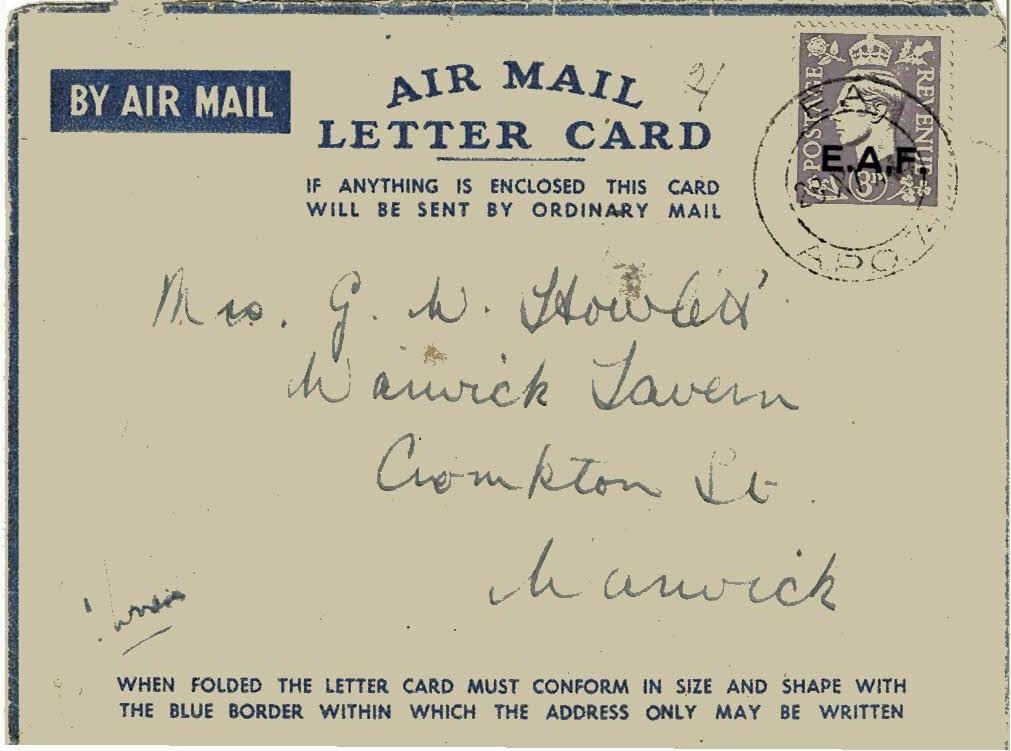 BY AIR MAIL
AIR MAIL
LETTER CARD
IF ANYTHING IS ENCLOSED THIS CARD
WILL BE SENT BY ORDINARY MAIL
POSTAGE
REVENUE
3D
E.A.F.
A.P.O.
Mrs. G. W. Howlett
Warwick Tavern
Crompton St.
Warwick
WHEN FOLDED THE LETTER CARD MUST CONFORM IN SIZE AND SHAPE WITH
THE BLUE BORDER WITHIN WHICH THE ADDRESS ONLY MAY BE WRITTEN